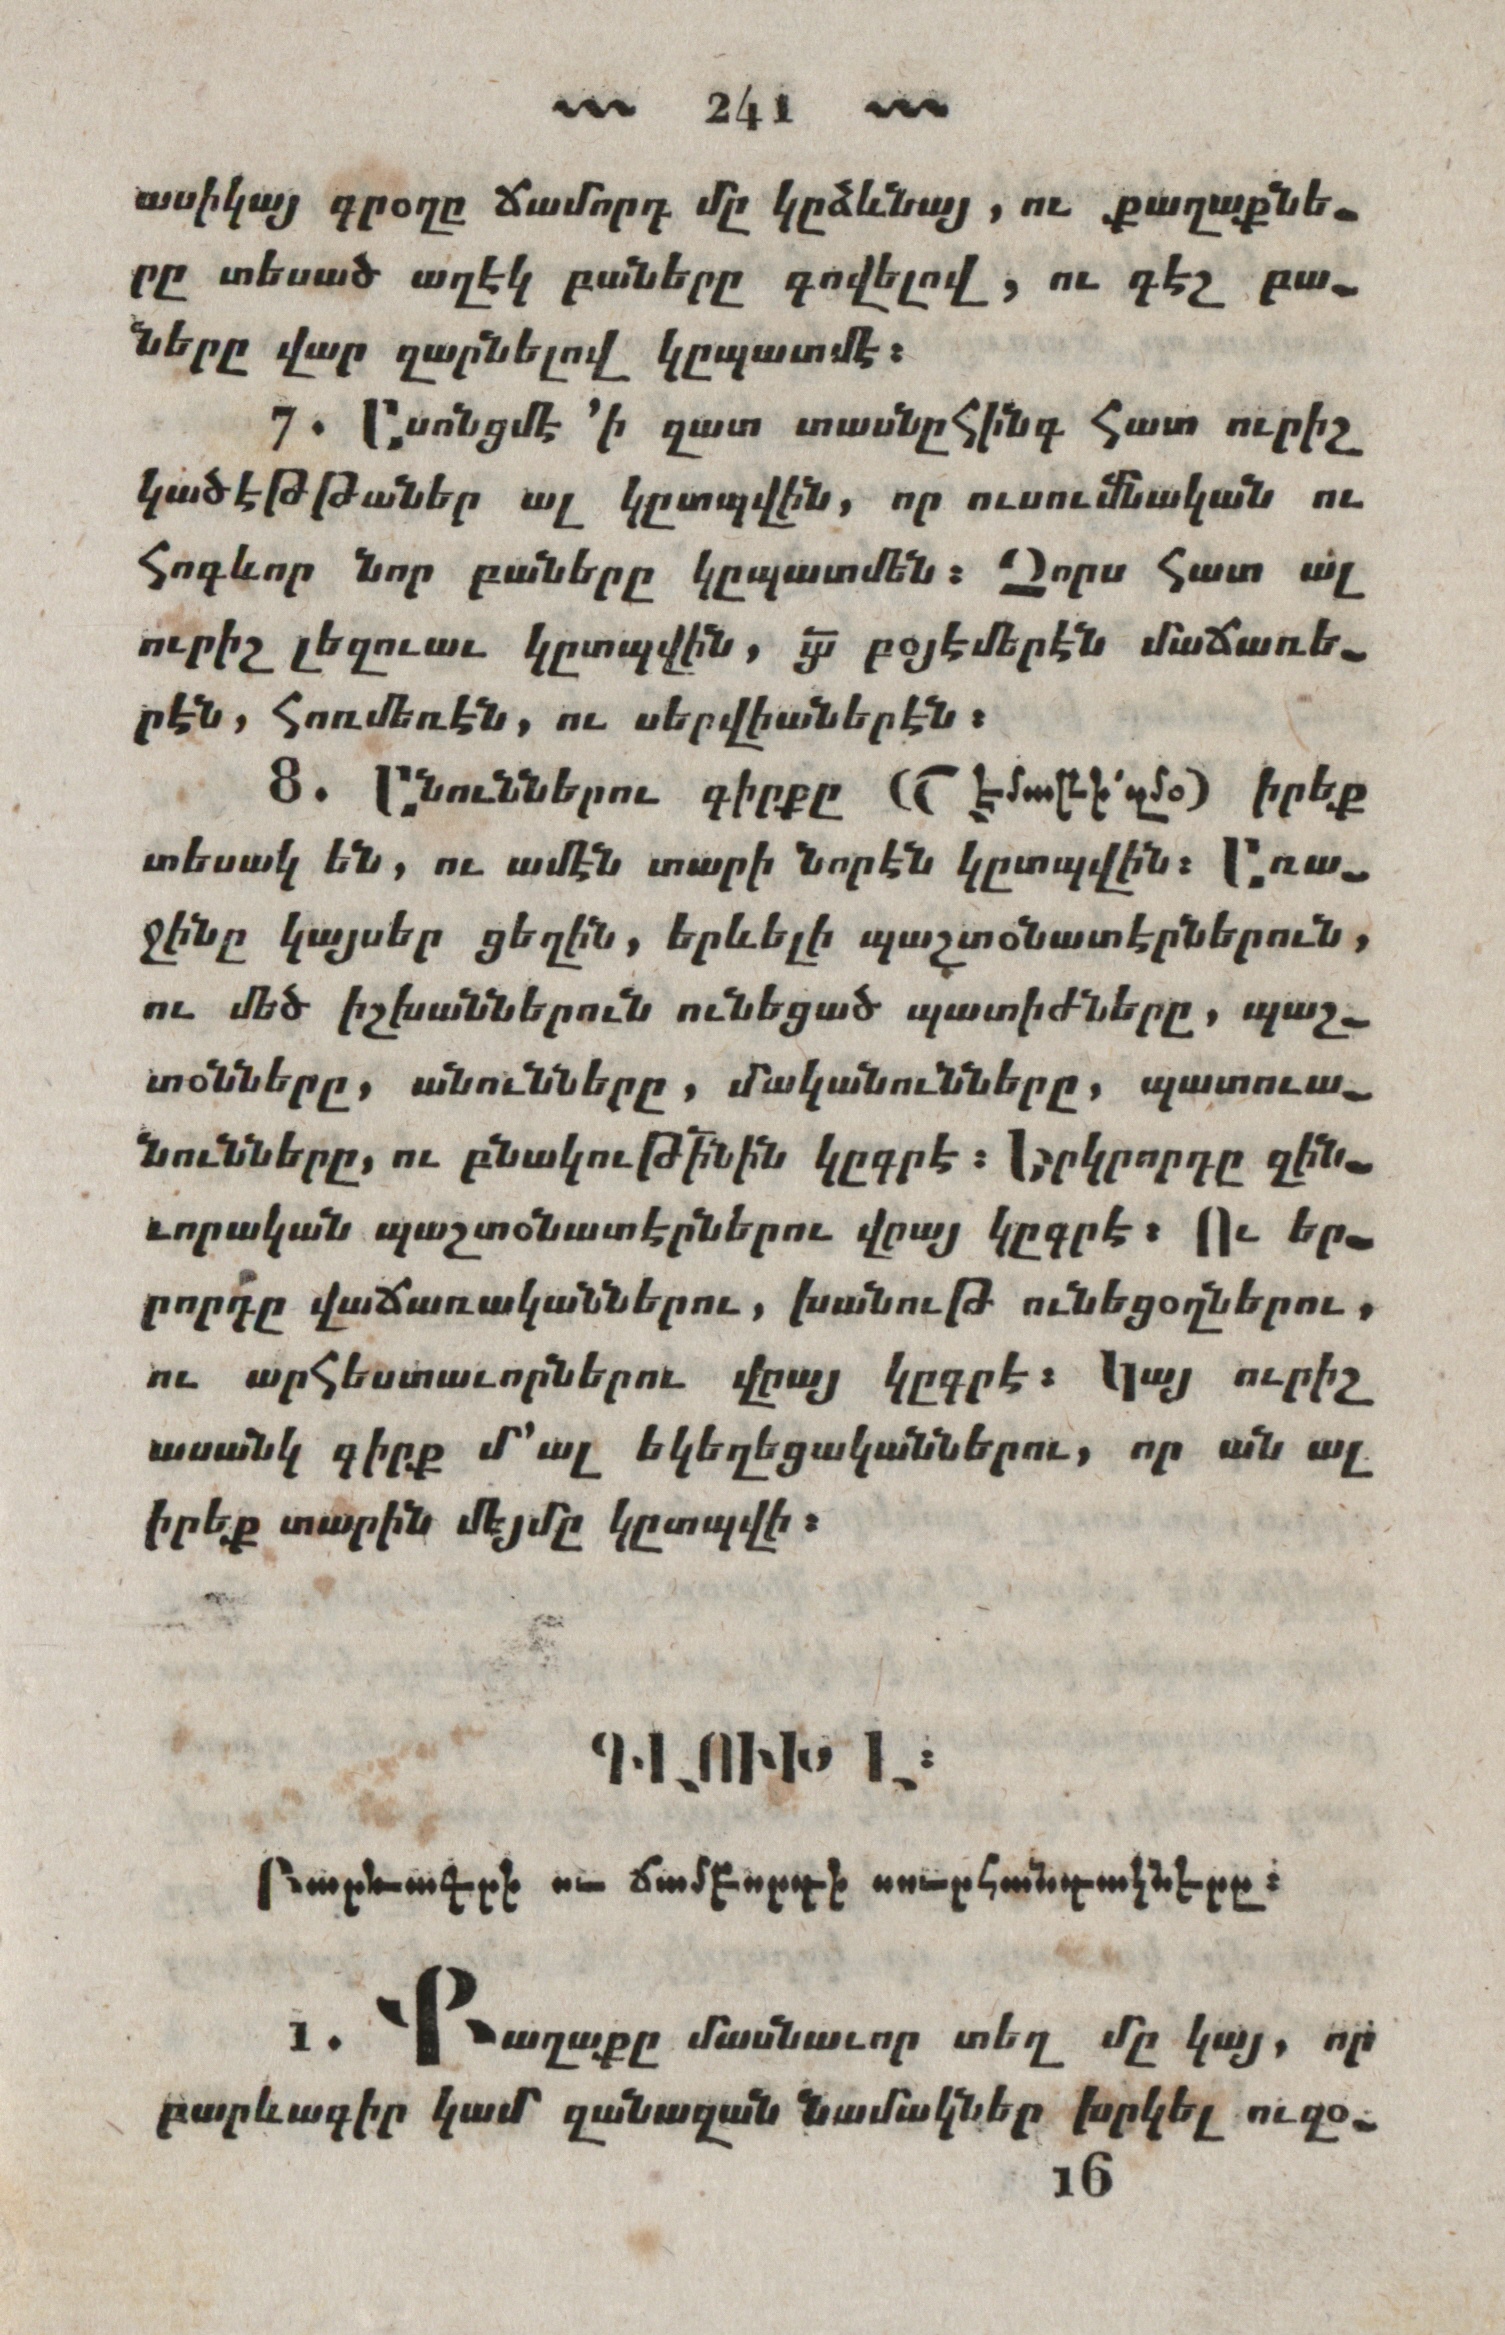 241
ասիկայ գրօղը ճամորդ մը կըձևնայ, ու քաղաքնե֊
րը տեսած աղէկ բաները գովելով, ու գէշ բա֊
ները վար զարնելով կըպատմէ։
7. Ըսոնցմէ ՚ի զատ տասնըհինգ հատ ուրիշ
կածէթթաներ ալ կըտպվին, որ ուսումնական ու
հոգևոր նոր բաները կըպատմեն։ Չորս հատ ալ
ուրիշ լեզուաւ կըտպվին, բօյէմերէն մաճառե֊
րէն, հռոմեռէն, ու սերվիաներէն։
8. Անուններու գիրքը () իրեք
տեսակ են, ու ամէն տարի նորէն կըտպվին։ Առա֊
ջինը կայսեր ցեղին, երևելի պաշտօնատէրներուն,
ու մեծ իշխաններուն ունեցած պատիժները, պաշ֊
տօնները, անունները, մականունները, պատուա֊
նունները, ու բնակութինին կըգրէ։ Երկրորդը զին֊
ւորական պաշտօնատէրներու վրայ կըգրէ։ Ու եր֊
րորդը վաճառականներու, խանութ ունեցօղներու,
ու արհեստաւորներու վրայ կըգրէ։ Կայ ուրիշ
ասանկ գիրք մ՚ալ եկեղեցականներու, որ ան ալ
իրեք տարին մէյմը կըտպվի։
ԳԼՈՒԽ Լ։
Բարևագրի ու ճամբորդի սուրհանդակները։
1. Քաղաքը մասնաւոր տեղ մը կայ, որ
բարևագիր կամ զանազան նամակներ խրկել ուզօ֊
16